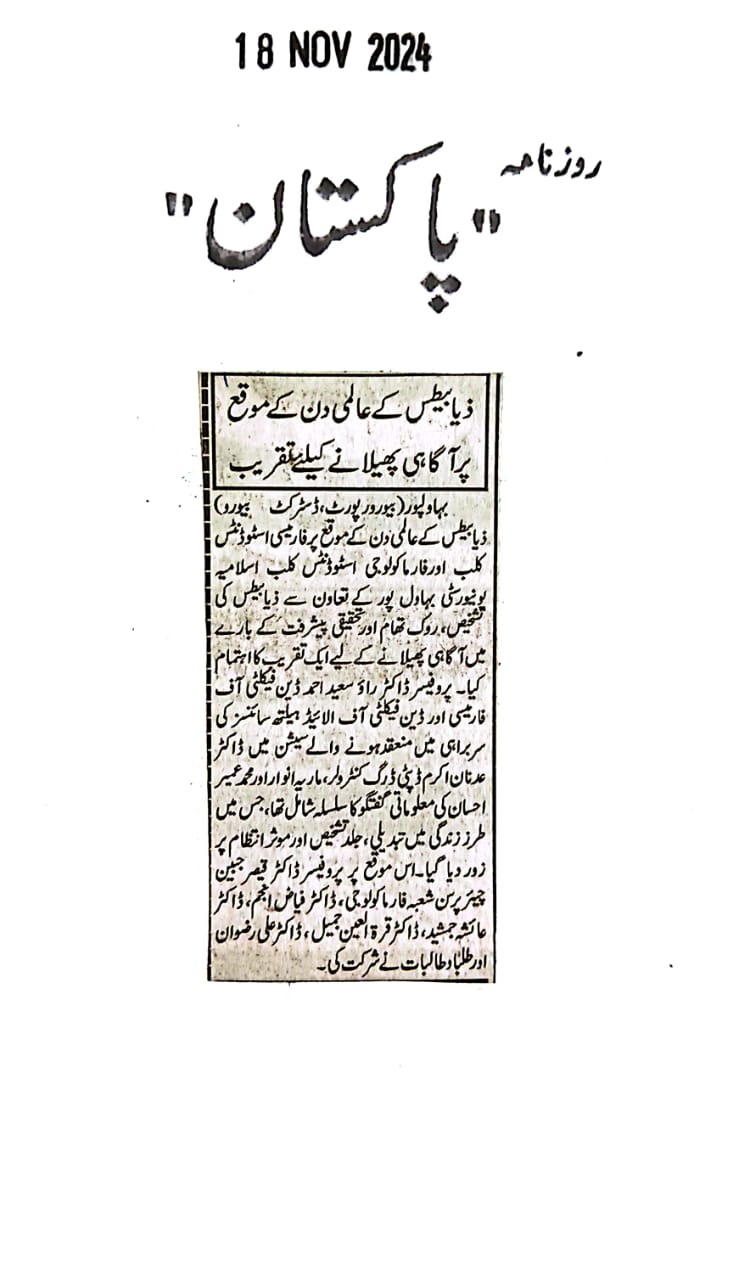 18 NOV 2024
روزنامہ
"پاکستان"
ذیابیطس کے عالمی دن کے موقع
پر آگاہی پھیلانے کیلئے تقریب
بہاولپور (بیورورپورٹ، ڈسٹرکٹ بیورو)
ذیابیطس کے عالمی دن کے موقع پر فارمیسی اسٹوڈنٹس
کلب اور فارماکولوجی اسٹوڈنٹس کلب اسلامیہ
یونیورسٹی بہاول پور کے تعاون سے ذیابیطس کی
تشخیص، روک تھام اور تحقیقی پیشرفت کے بارے
میں آگاہی پھیلانے کے لیے ایک تقریب کا اہتمام
کیا۔ پروفیسر ڈاکٹر راؤ سعید احمد ڈین فیکلٹی آف
فارمیسی اور ڈین فیکلٹی آف الائیڈ ہیلتھ سائنسز کی
سربراہی میں منعقد ہونے والے سیشن میں ڈاکٹر
عدنان اکرم ڈپٹی ڈرگ کنٹرولر، ماریہ انوار اور محمد عمیر
احسان کی معلوماتی گفتگو کا سلسلہ شامل تھا، جس میں
طرز زندگی میں تبدیلی، جلد تشخیص اور موثر انتظام پر
زور دیا گیا۔ اس موقع پر پروفیسر ڈاکٹر قیصر جبین
چیئر پرسن شعبہ فارماکولوجی، ڈاکٹر فیاض انجم، ڈاکٹر
عائشہ جمشید، ڈاکٹر قرۃ العین جمیل، ڈاکٹر علی رضوان
اور طلبا و طالبات نے شرکت کی۔